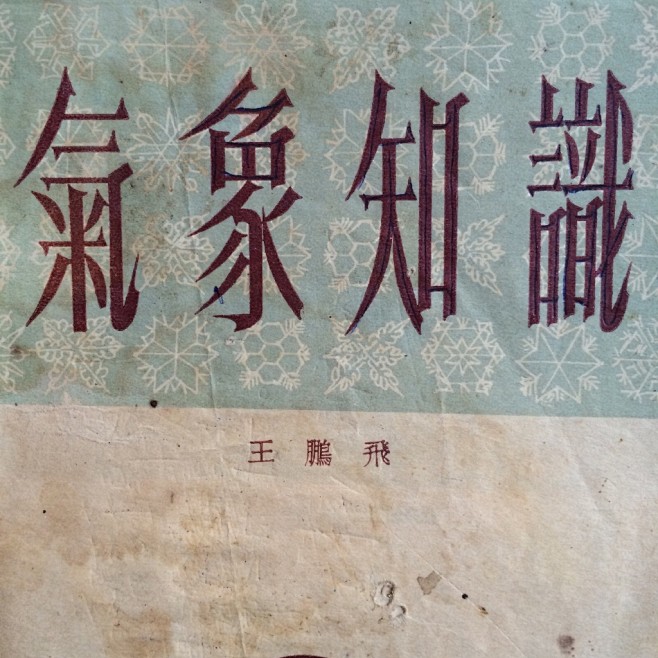 氣象知識
王鵬飛